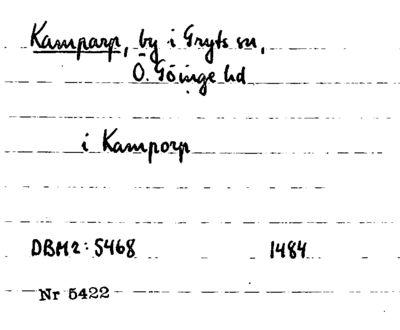 Kamparp, by i Gryts sn,
Ö. Göinge hd
i Kamporp
DBM2: 5468 1484
Nr 5422